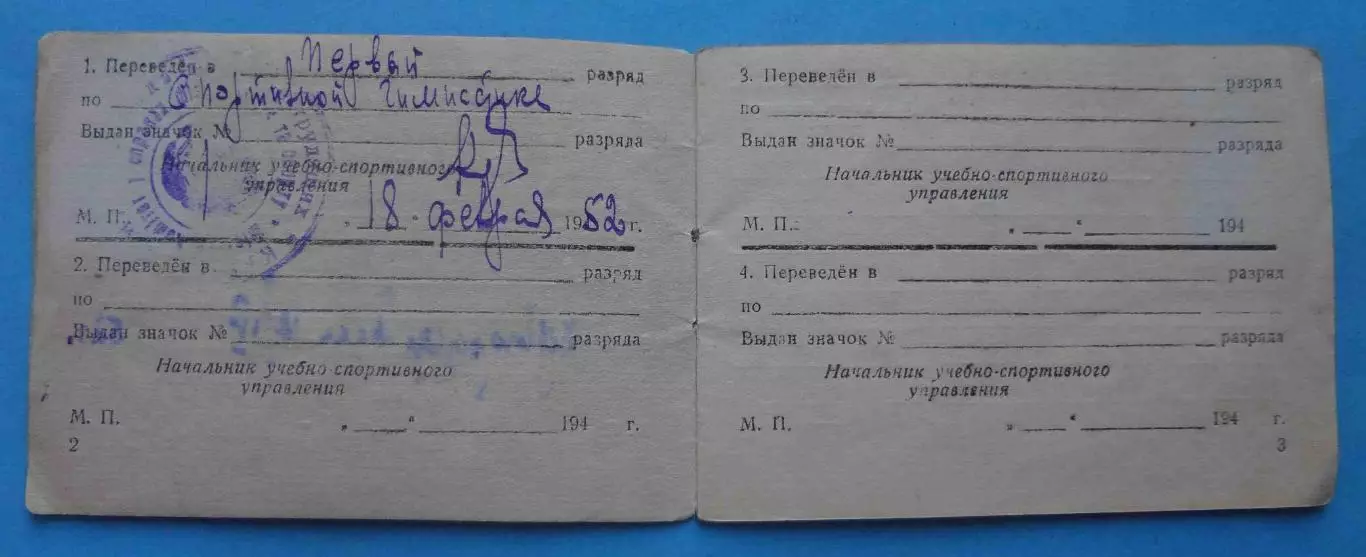 1. Переведён в Первый разряд
по Спортивной Гимнастике
Выдан значок № разряда
Начальник учебно-спортивного
управления
М. П. „18" февраля 1952 г.
2. Переведён в разряд
по
Выдан значок № разряда
Начальник учебно-спортивного
управления
М. П. „ " 194 г.
2
3. Переведён в разряд
по
Выдан значок № разряда
Начальник учебно-спортивного
управления
М. П. „ " 194
4. Переведён в разряд
по
Выдан значок № разряда
Начальник учебно-спортивного
управления
М. П. „ " 194 г.
3